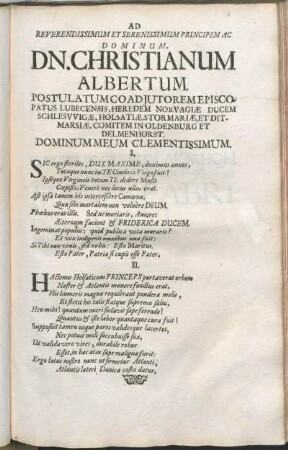 AD
REVERENDISSIMUM ET SERENISSIMUM PRINCIPEM AC
DOMINUM,
DN. CHRISTIANUM
ALBERTUM
POSTULATUM COADJUTOREM EPISCO-
PATUS LUBECENSIS, HEREDEM NORVAGIÆ DUCEM
SCHLESVVIGÆ, HOLSATIÆ, STORMARIÆ, ET DIT-
MARSIÆ, COMITEM IN OLDENBURG ET
DELMENHORST.
DOMINUM MEUM CLEMENTISSIMUM.
I.
SIC ergo steriles, DUX MAXIME, duximus annos,
Totaque nunc in TE Cimbria Virgo fuit!
Ipseque Virgineis totum TE dedere Musis
Cupisse, Veneri nec locus ullus erat.
Ast ipsa tamen his intercessere Camœna,
Qua sibi mortalem non voluere DEUM.
Phœbus erat illis. Sed ne moriaris, Amores
Æternum facient & FRIDERICA DUCEM.
Ingeminat populus: quid publica vota moraris?
Et vox indigenis omnibus una fuit:
Si Tibi non vovis, sed nobis: Esto Maritus,
Esto Pater, Patria si cupis esse Pater,
II.
HActenus Holsaticum PRINCEPS portaverat orbem
Noster & Atlantis munere functus erat.
His humeris magna requierunt pondera molis,
Et stetit his talis statque suprema salus.
Heu mihi! quantum oneri suctavit sæpe ferendo!
Quantus & iste labor quantaque cura fuit!
Supposuit tamen usque pares validosque lacertos,
Nec potuit moli succubuisse sua.
Ut valida vero vires, durabile robur
Esset, in hac etas sæpe maligna fuit:
Ergo latus nostro nunc ut firmetur Atlanti,
Atlantis lateri Danica costa datur,